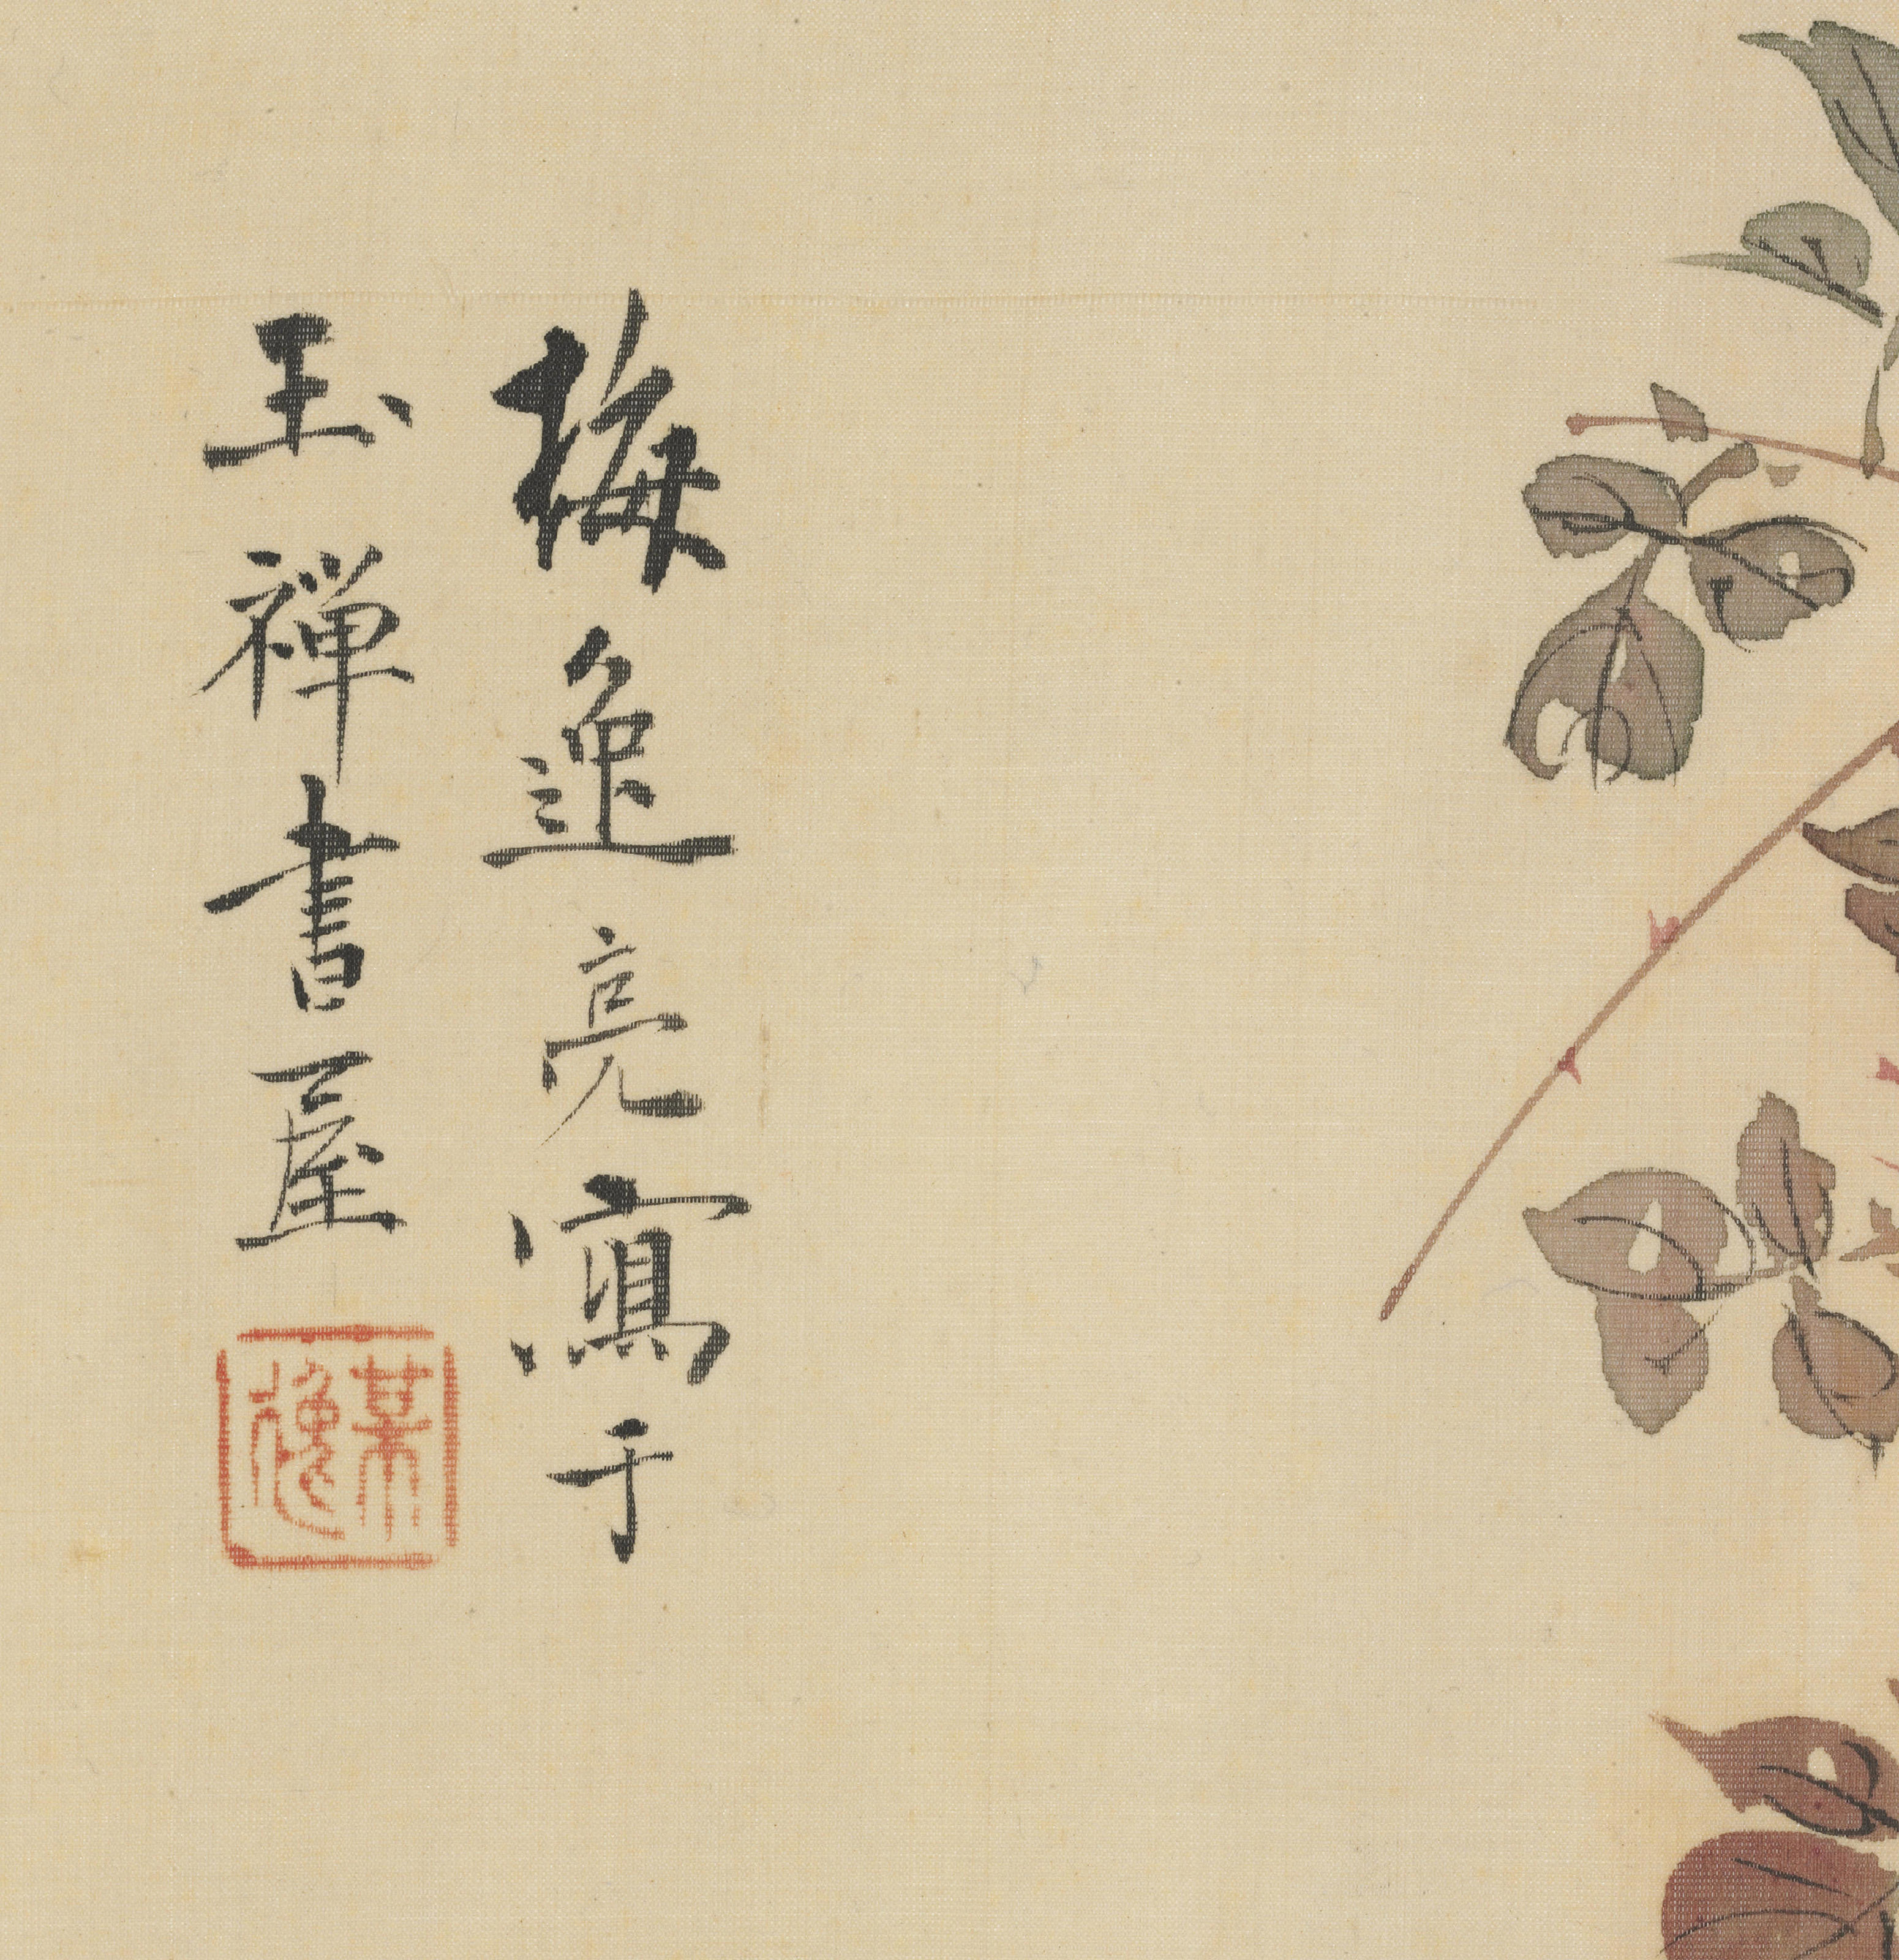 梅逸亮寫于
玉禅書屋
某逸